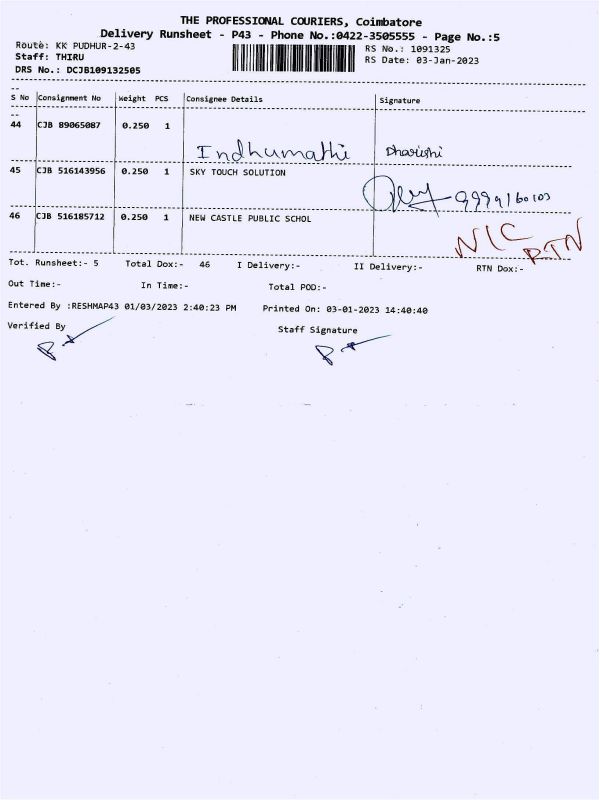 THE PROFESSIONAL COURIERS, Coimbatore
Delivery Runsheet - P43 - Phone No.:0422-3505555 - Page No.:5
Route: KK PUDHUR-2-43 RS No.: 1091325
Staff: THIRU RS Date: 03-Jan-2023
DRS No.: DCJB109132505
S No Consignment No Weight PCS Consignee Details Signature
44 CJB 89065087 0.250 1
Indhumathi Dharishi
45 CJB 516143956 0.250 1 SKY TOUCH SOLUTION
46 CJB 516185712 0.250 1 NEW CASTLE PUBLIC SCHOL
N/C RTN
Tot. Runsheet:- 5 Total Dox:- 46 I Delivery:- II Delivery:- RTN Dox:-
Out Time:- In Time:- Total POD:-
Entered By :RESHMAP43 01/03/2023 2:40:23 PM Printed On: 03-01-2023 14:40:40
Verified By Staff Signature